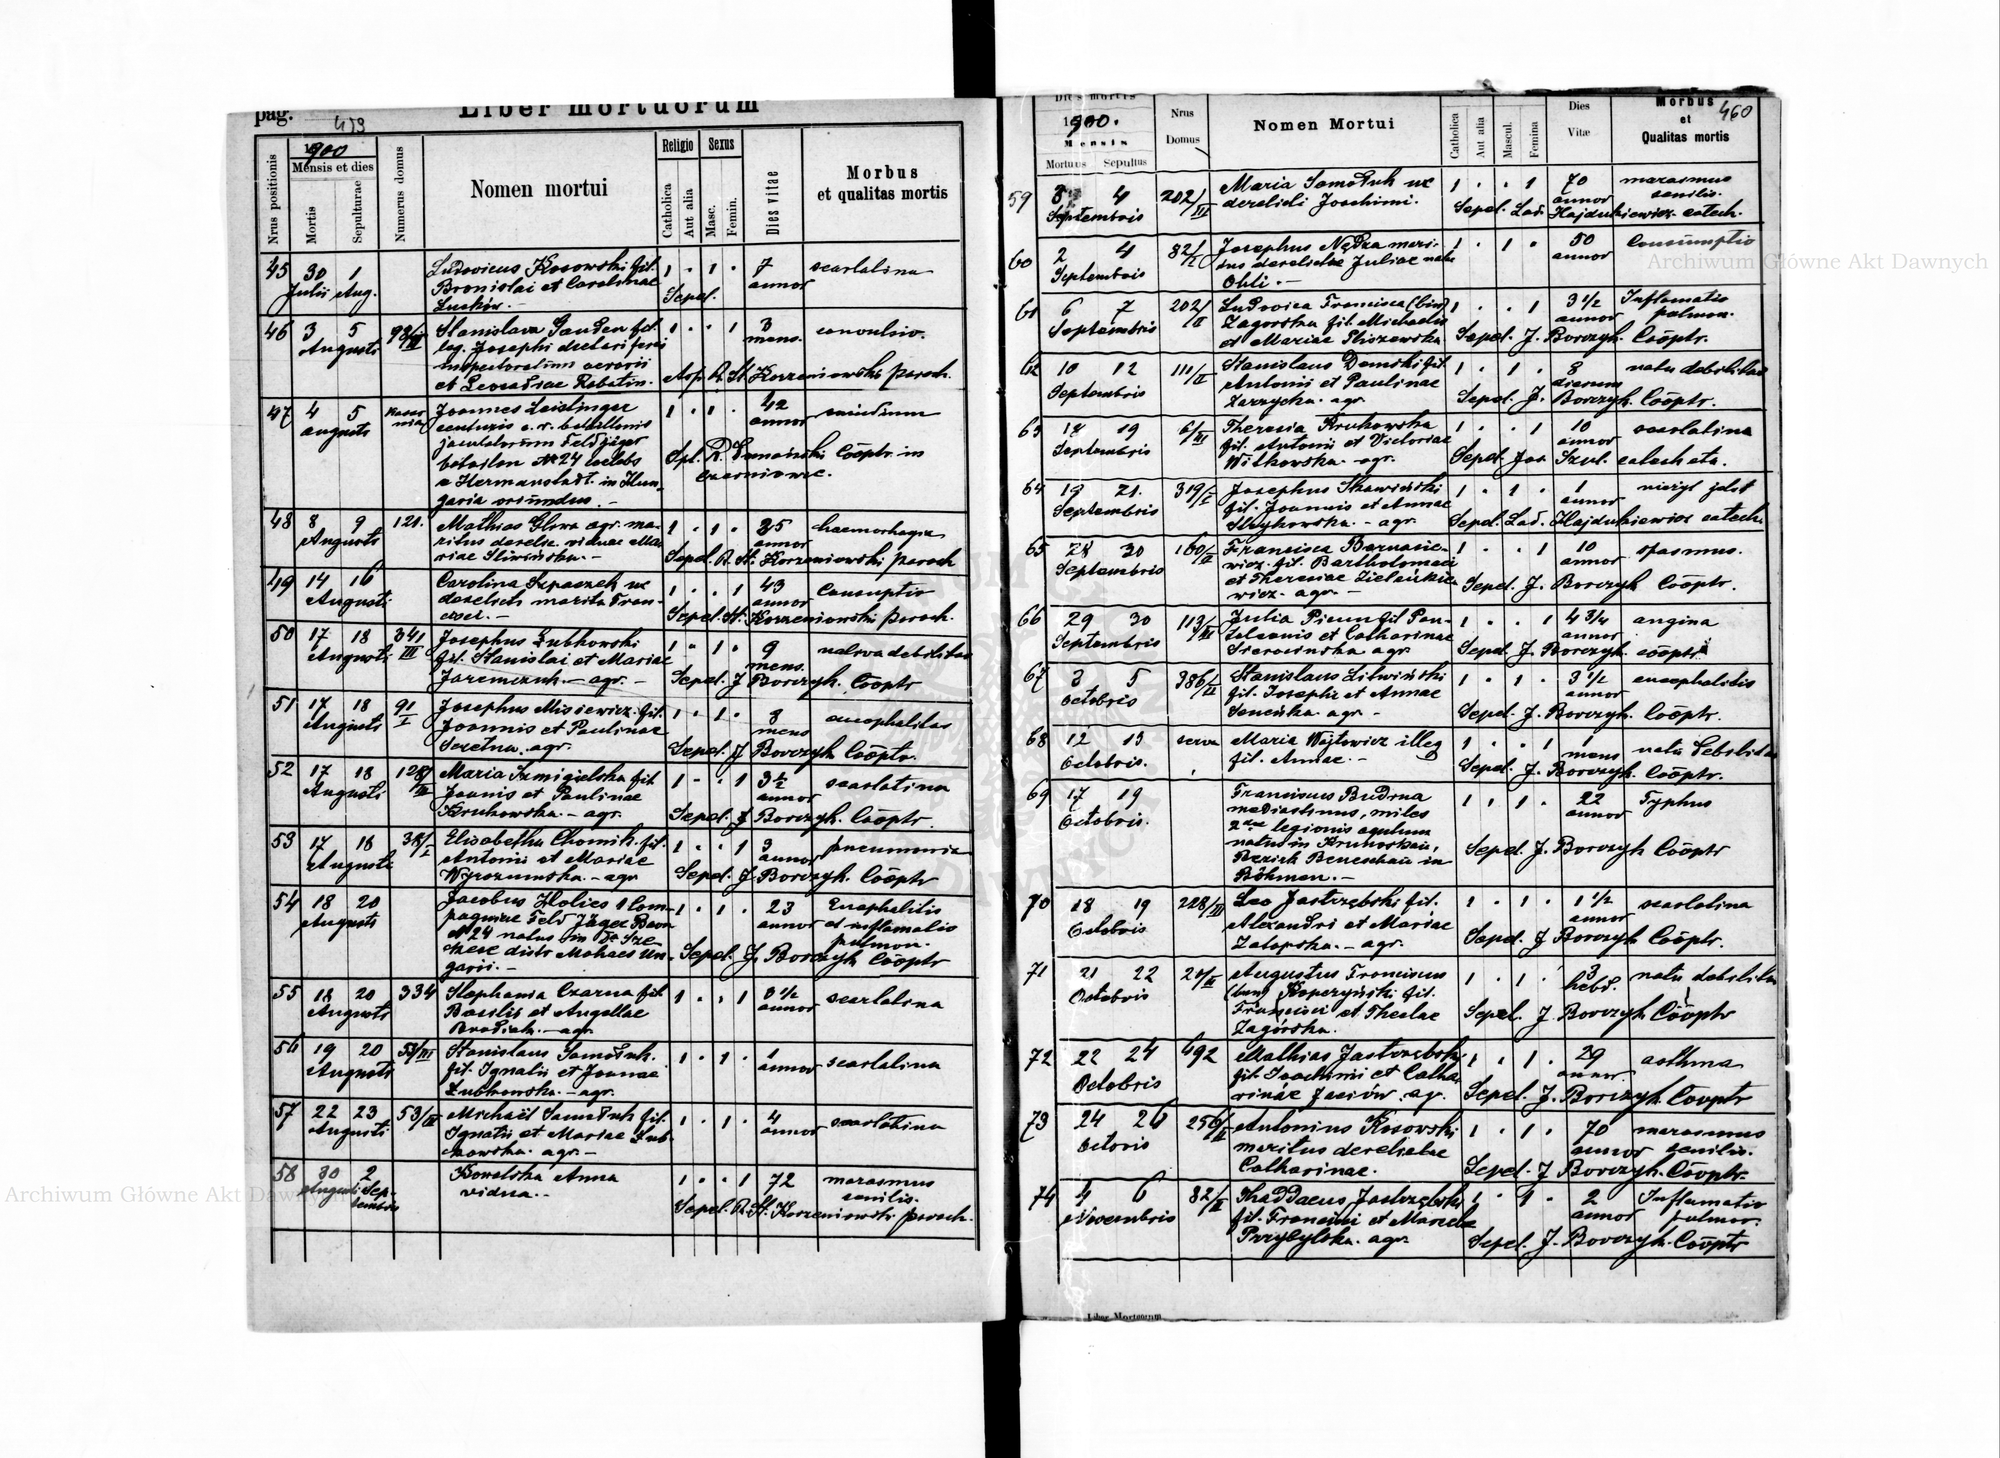 pag. 459
Liber mortuorum
Nrus positionis
1900
Mensis et dies
Mortis
Sepulturae
Numerus domus
Nomen mortui
Religio
Catholica
Aut alia
Sexus
Masc.
Femin.
Dies vitae
Morbus
et qualitas mortis
45 30 1 Ludovicus Kosowski fil. 1 · 1 · 7 scarlatina
Julii Aug. Bronislai et Carolinae annor
Sepel.
46 3 5 Stanislava Gauden fil. 1 · · 1 3 convulsio.
Augusti leg. Josephi mens.
et Leocadiae
Asp. R. St. Korzeniowski paroch.
47 4 5 Joannes Leistinger 1 · 1 · 42
Augusti annor
Feldjäger
bataillon № 24
a Hermanstadt in Hun-
garia oriundus. -
Spl. R. Cooptr. in
48 8 9 121. Mathias agr. ma- 1 · 1 · 35 haemorhagia
Augusti ritus derelic. viduae Ma- annor
riae Sliwińska. -
Sepel. R. St. Korzeniowski paroch
49 14 16 Carolina ux 1 · · 1 43 Consumptio
Augusti marita Fran- annor
Sepel. St. Korzeniowski paroch.
50 17 18 341/III Josephus Lubkowski 1 · 1 · 9
Augusti fil. Stanislai et Mariae mens.
Jaremczuk. - agr. -
Sepel. J Borczyk. Cooptr
51 17 18 91/I Josephus Misiewicz. fil. 1 · 1 · 8
Augusti Joannis et Paulinae mens
agr.
Sepel. J Borczyk Cooptr.
52 17 18 128/III Maria Szmigielska fil 1 - · 1 3½ scarlatina
Augusti Joanis et Paulinae annor
Kruhowska. - agr.
Sepel. J Borczyk. Cooptr.
53 17 18 38/I Elisabetha Chomik. fil. 1 · · 1 3 pneumonia
Augusti Antonii et Mariae annor
Wyrozumska. - agr
Sepel. J Borczyk. Cooptr
54 18 20 Jacobus 1 Com- 1 · 1 · 23 Encephalitis
Augusti pagniae Feld Jäger annor et inflamatio
№ 24 natus in pulmon.
distr Mohacs Un-
garii. -
Sepel J. Borczyk Cooptr
55 18 20 334 Stephania Czarna fil 1 · · 1 3½ scarlatina
Augusti Basilii et Angellae annor
- agr.
56 19 20 53/III Stanislaus Samoluk. 1 · 1 · 1 scarlatina
Augusti fil. Ignatii et Joannae annor
Lubkowska. - agr.
57 22 23 53/III Michaël Samoluk fil. 1 · 1 · 4 scarlatina
Augusti Ignatii et Mariae Lub- annor
kowska. agr. -
58 30 2 Kowalska Anna 1 · · 1 72 marasmus
Augusti Sep- vidua. - senilis.
tembris
Sepel. R. St. Korzeniowski paroch.
460
Dies mortis
1900.
Mensis
Mortuus Sepultus
Nrus
Domus
Nomen Mortui
Catholica
Aut alia
Mascul.
Femina
Dies
Vitæ
Morbus
et
Qualitas mortis
59 3 4 202/III Maria Samoluk ux 1 · · 1 70 marasmus
Septembris derelicti Joachimi. annor senilis.
Sepel. Lad. Hajdukiewicz catech.
60 2 4 82/I Josephus Nędza mari- 1 · 1 · 50 Consumptio
Septembris tus derelictae Juliae natae annor
Ohli. -
61 6 7 202/II Ludovica Francisca (bin) 1 · · 1 3½ Inflamatio
Septembris Zagorska fil. Michaelis annor pulmon.
et Mariae Pliszewska
Sepel J. Borczyk. Cooptr.
62 10 12 111/II Stanislaus Domski fil. 1 · 1 · 8 natu debilitas
Septembris Antonii et Paulinae dierum
Zarzycka. agr.
Sepel. J. Borczyk. Cooptr.
63 18 19 6/III Theresia Kruhowska 1 · · 1 10 scarlatina
Septembris fil. Antonii et Victoriae annor
Witkowska. - agr.
Sepel. Jos Szul. catecheta.
64 19 21. 319/I Josephus Skawiński 1 · 1 · 1
Septembris fil. Joannis et Annae annor
Strykowska. - agr.
Sepel. Lad. Hajdukiewicz catech.
65 28 30 160/II Francisca Barnasie- 1 · · 1 10 spasmus.
Septembris wicz. fil. Bartholomaei annor
et Theresiae
wicz. agr. -
Sepel J. Borczyk Cooptr.
66 29 30 113/III Julia Picun fil Pan- 1 · · 1 4¾ angina
Septembris taleonis et Catharinae annor
Sierocinska agr.
Sepel J. Borczyk. cooptr
67 3 5 386/II Stanislaus Litwiński 1 · 1 · 3½ encephalitis
Octobris fil. Josephi et Annae annor
agr. -
Sepel. J. Borczyk. Cooptr.
68 12 13 Maria Wojtowicz illeg 1 · · 1 1 natu debilitas
Octobris. fil. Annae. - mens
Sepel. J. Borczyk. Cooptr.
69 17 19 Franciscus Budrna 1 1 1 · 22 Typhus
Octobris. miles annor
2dae legionis
natus in
Bezirk Beneschau in
Böhmen. -
Sepel. J. Borczyk Cooptr
70 18 19 228/III Leo Jastrzębski fil. 1 · 1 · 1½ scarlatina
Octobris Alexandri et Mariae annor
- agr.
Sepel. J Borczyk Cooptr.
71 21 22 20/II Augustus Franciscus 1 · 1 · 3 natu debilitas
Octobris (bin) Kopczyński fil. hebd.
Francisci et Theclae
Zagórska.
Sepel. J Borczyk Cooptr
72 22 24 492 Mathias Jastrzębski 1 · 1 · 29 asthma
Octobris fil. Joachimi et Catha- annor
rinae Jasiów. agr.
Sepel. J. Borczyk. Cooptr
73 24 26 256/II Antonius Kosowski 1 · 1 · 70 marasmus
Octoris maritus derelictae annor senilis.
Catharinae.
Sepel. J Borczyk. Cooptr.
74 4 6 82/II Thaddaeus Jastrzębski 1 · 1 · 2 Inflamatio
Novembris fil. Francisci et Marcelae annor pulmon.
Przybylska. agr.
Sepel. J. Borczyk. Cooptr
Liber Mortuorum
Archiwum Główne Akt Dawnych
Archiwum Główne Akt Dawnych